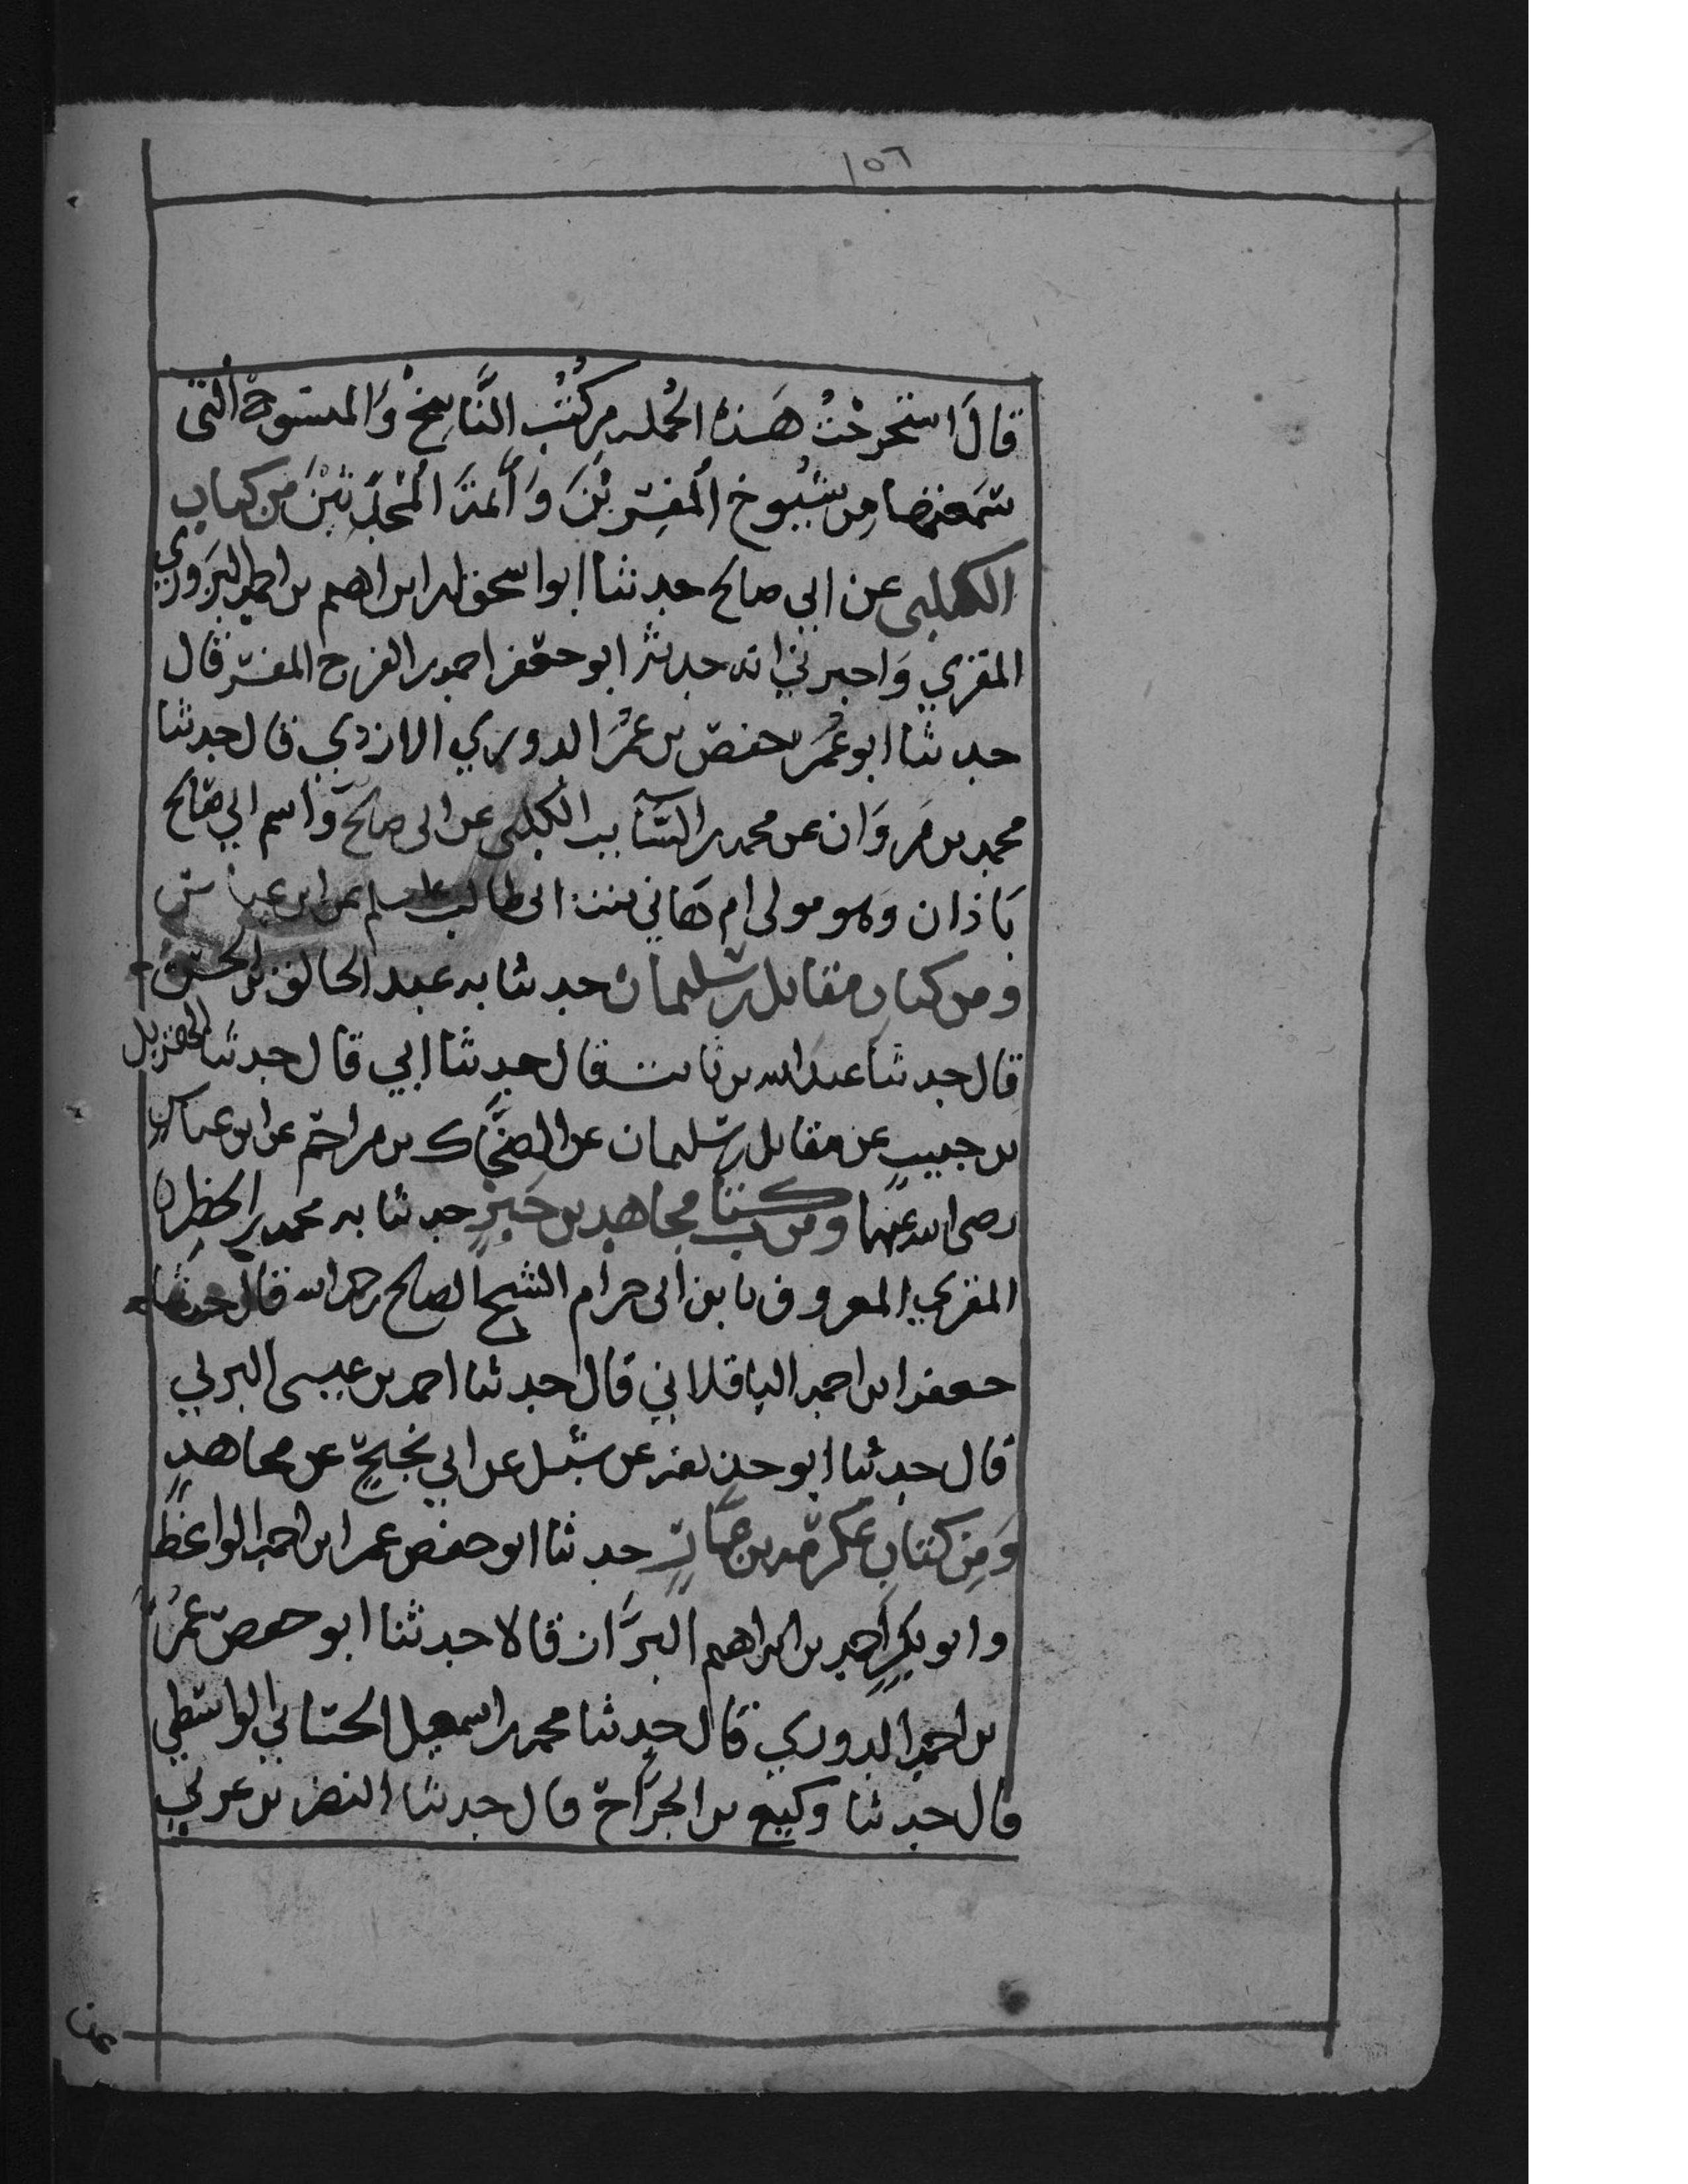 ١٥٦
قَالَ استخرجْتُ هَذه الجُمله من كُتُب النَّاسِخْ وَالمنسوخْ التى
سَمعتها من شيُوخ المفسِّرينَ وَأئمة المُحدِّثيْنَ من كتاب
الكلبى عن ابي صالح حدثنا ابو اسحق ابراهيم بن احمد البزوري
المقري وَاخبرني انه حدثه ابو جعفر احمد بن الفرح المفسّر قال
حدثنا ابو عُمَر حفص بن عمُر الدوري الازدي قال حدثنا
محمد بن مَروَان عن محمد بن السَّايب الكلبى عن ابى صالح وَاسم ابي صَالح
بَاذان وَهو مولى ام هَاني بنت ابى طالب عن ابن عباس
ومن كتاب مقاتل بن سُليمان حدثنا به عبد الخالق بن الحسَين
قال حدثنا عبد الله بن ثابت قال حدثنا ابي قال حدثنا الهذيل
بن حبيبٍ عن مقاتل بن سليمان عن الضحَّاك بن مزاحم عن ابن عباس
رضى الله عنهما ومن كتاب مجاهد بن جَبرٍ حدثنا به محمد بن الخضر
المقري المعروف بابن ابى حزام الشيخ الصالح رحمه الله قال حدثنا
جعفر ابن احمد الباقلاني قال حدثنا احمد بن عيسى البرلي
قال حدثنا ابو حذيفه عن شبْل عن ابي نجيحٍ عن مجاهدٍ
وَمِن كتاب عكرمَه بن حدثنا ابو حفص عمر ابن احمد الواعظ
وابو بكرٍ احمد بن ابراهيم البزَّاز قالا حدثنا ابو حفص عمُر
بن احمد الدوري قال حدثنا محمد بن اسمعيل الحسَاني الواسطي
قال حدثنا وكيع بن الجرَّاح قال حدثنا النضر بن عربي
عن